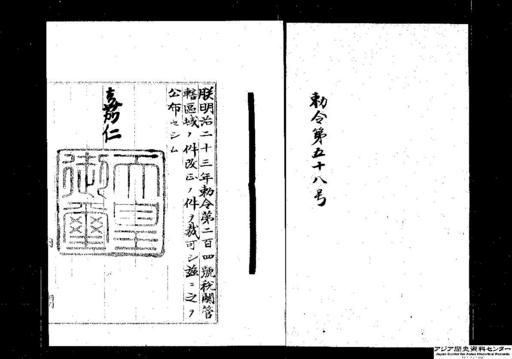 勅令第五十八号
朕明治二十三年勅令第二百四號稅關管
轄區域ノ件改正ノ件ヲ裁可シ茲ニ之ヲ
公布セシム
嘉仁
天皇
御璽
アジア歴史資料センター
Japan Center for Asian Historical Records